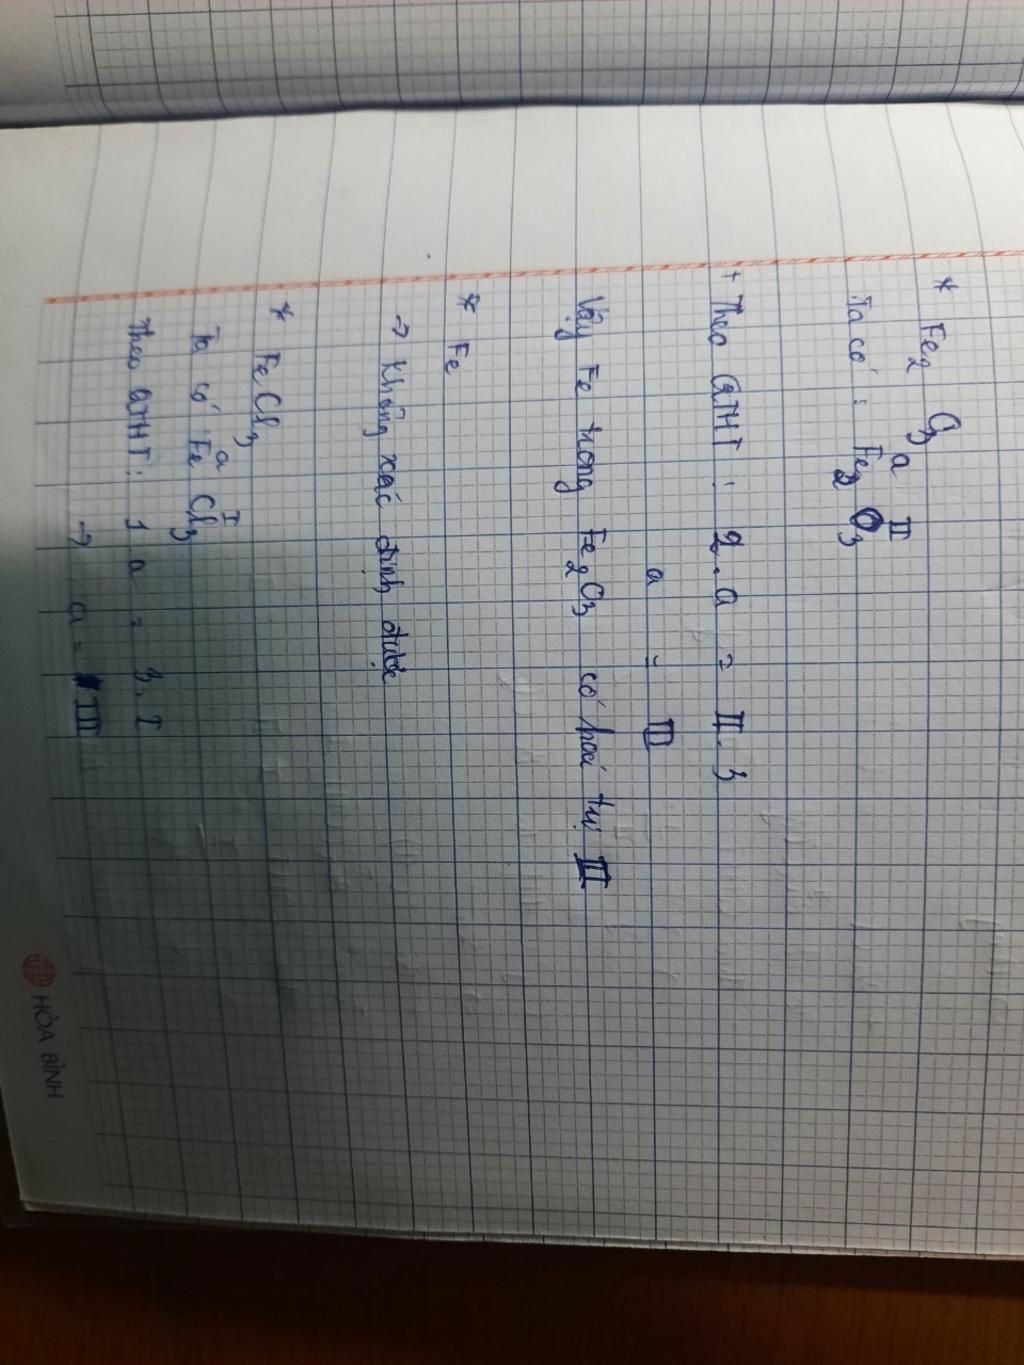 * Fe2 O3
Ta có : Fe2 O3
a II
+ Theo QTHT : 2.a = II.3
a = III
Vậy Fe trong Fe2O3 có hoá trị III
* Fe
→ Không xác định được
* FeCl3
a I
Ta có Fe Cl3
Theo QTHT : 1 a = 3.I
→ a = III
HÒA BÌNH